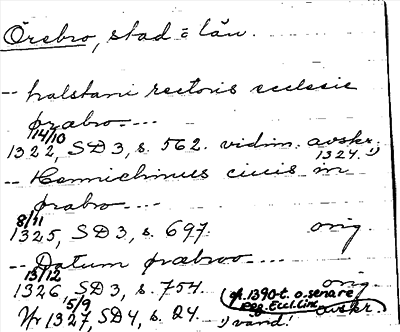 Örebro, stad o län.
-- halstani rectoris ecclesie
ørabro---
14/10
1322, SD 3, s. 562. vidim. avskr.
1324. 1)
-- Hemichinus ciuis in
ørabro---
8/11
1325, SD 3, s. 697. orig.
-- Datum ørabroo---
13/12
1326, SD 3, s. 754. orig.
15/9
1327, SD 4, s. 24. avskr.
1390-t. o. senare
Reg. Eccl. Linc.